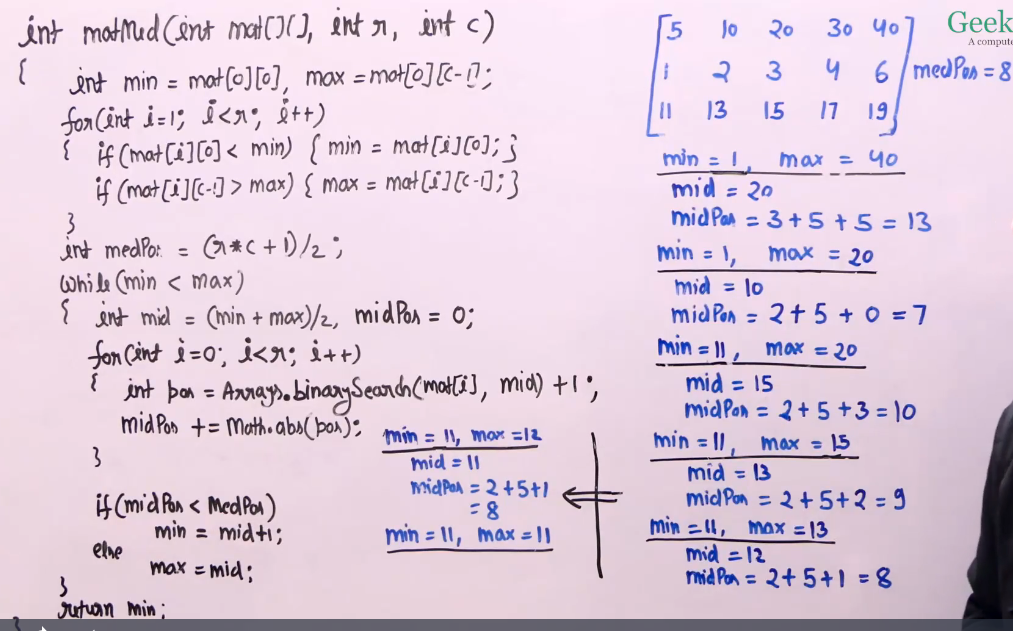 int matMed(int mat[][], int r, int c)
{ int min = mat[0][0], max = mat[0][c-1];
for(int i=1; i<r; i++)
{ if(mat[i][0] < min) { min = mat[i][0]; }
if(mat[i][c-1] > max) { max = mat[i][c-1]; }
}
int medPos = (r*c + 1)/2;
while(min < max)
{ int mid = (min + max)/2, midPos = 0;
for(int i=0; i<r; i++)
{ int pos = Arrays.binarySearch(mat[i], mid) + 1;
midPos += Math.abs(pos);
}
if(midPos < MedPos)
min = mid+1;
else
max = mid;
}
return min;
}
min = 11, max = 12
mid = 11
midPos = 2+5+1
= 8
min = 11, max = 11
5 10 20 30 40
1 2 3 4 6 medPos = 8
11 13 15 17 19
min = 1, max = 40
mid = 20
midPos = 3+5+5 = 13
min = 1, max = 20
mid = 10
midPos = 2+5+0 = 7
min = 11, max = 20
mid = 15
midPos = 2+5+3 = 10
min = 11, max = 15
mid = 13
midPos = 2+5+2 = 9
min = 11, max = 13
mid = 12
midPos = 2+5+1 = 8
Geek
A compute